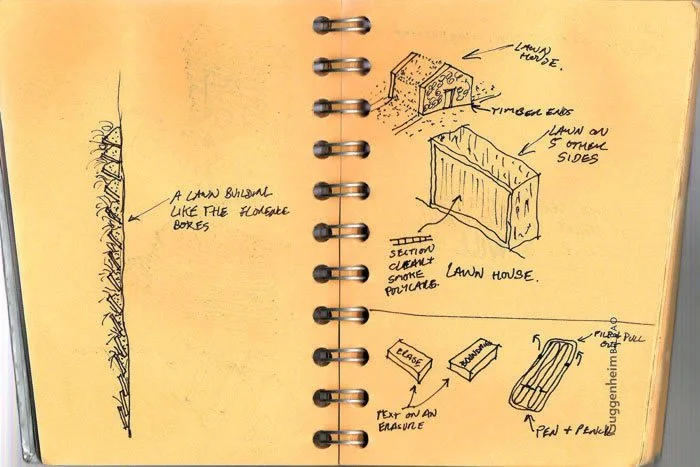 A LAWN BUILDING
LIKE THE FLORENCE
BOXES
LAWN
HOUSE.
TIMBER ENDS
LAWN ON
5 OTHER
SIDES
SECTION
CLEAR +
SMOKE
POLYCARB.
LAWN HOUSE.
ERASE
TEXT ON AN
ERASURE
PULL
OUT
PEN + PENCIL
GuggenheimBILBAO